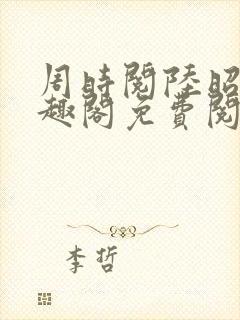 周時閱陸昭
趣閣免費閱
李哲